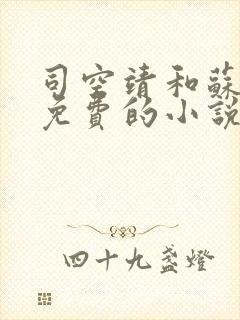 司空靖和蘇
免費的小說
四十九盞燈